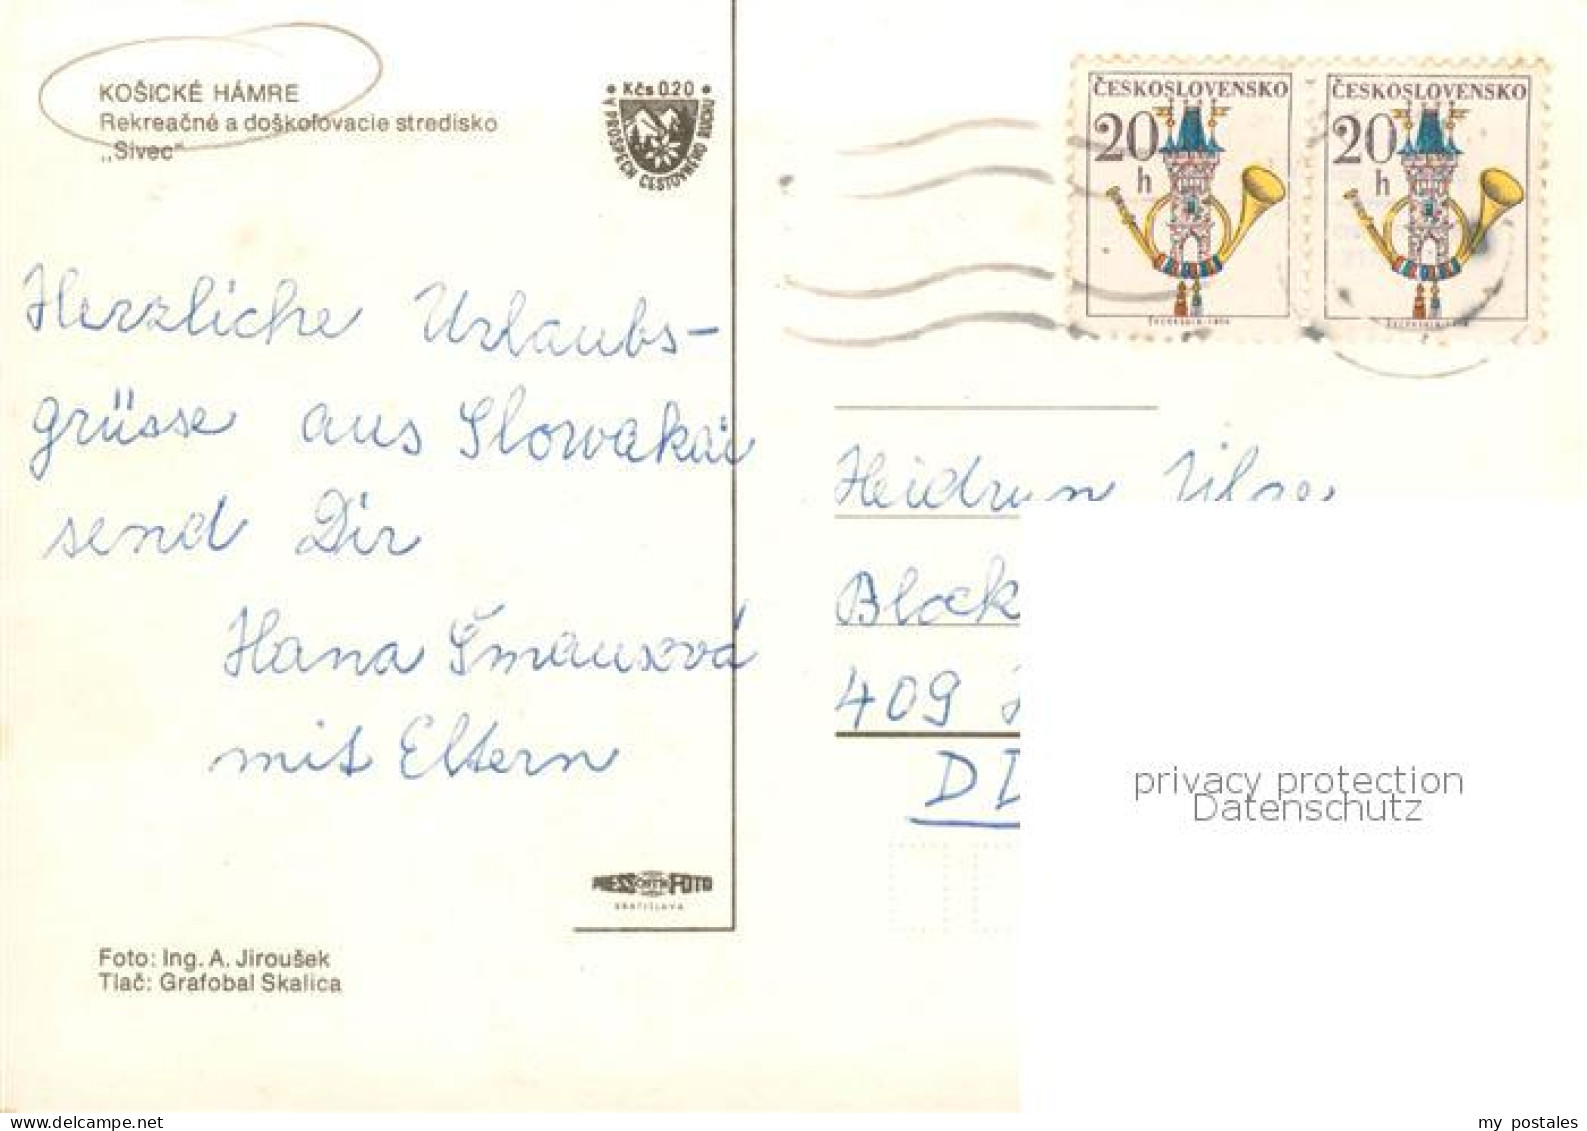 KOŠICKÉ HÁMRE
Rekreačné a doškoľovacie stredisko
„Sivec“
• Kčs 0.20 •
V PROSPECH CESTOVNÉHO RUCHU
ČESKOSLOVENSKO
20
h
ČESKOSLOVENSKO
20
h
Herzliche Urlaubs-
grüsse aus Slowakai
send Dir
Hana Šmauxová
mit Eltern
Heidrun
Block
409
D
privacy protection
Datenschutz
PRESSFOTO
BRATISLAVA
Foto: Ing. A. Jiroušek
Tlač: Grafobal Skalica
my postales